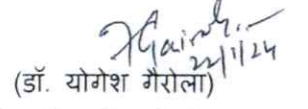 22/1/24
(डॉ. योगेश गैरोला)